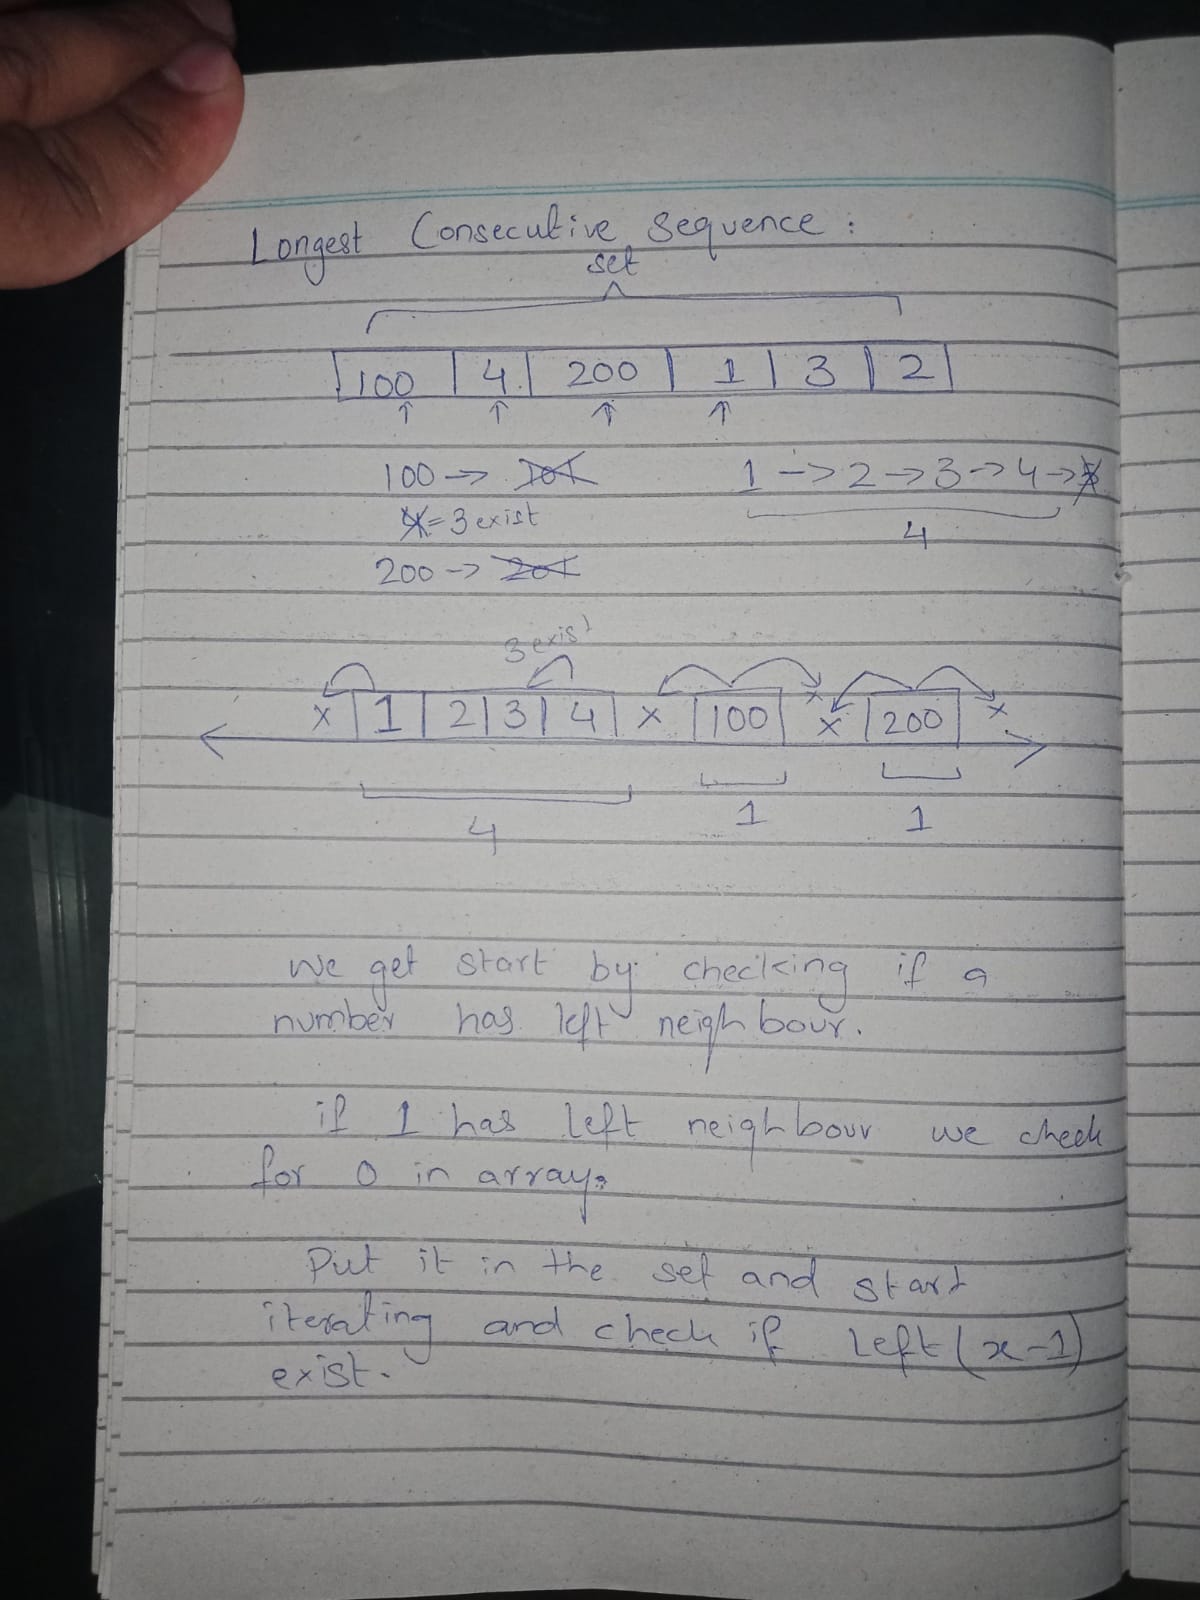 Longest Consecutive Sequence :
set
100 | 4 | 200 | 1 | 3 | 2
↑ ↑ ↑ ↑
100 -> 101 1 -> 2 -> 3 -> 4 -> 5
4 = 3 exist
4
200 -> 201
3 exist
x | 1 | 2 | 3 | 4 | x | 100 | x x | 200 | x
4 1 1
we get start by checking if a
number has left neighbour.
if 1 has left neighbour we check
for 0 in array.
Put it in the set and start
iterating and check if left (x-1)
exist.